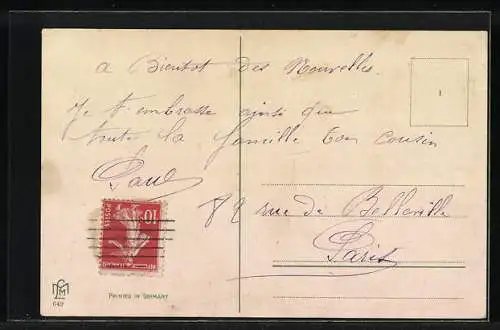 a Bientot des Nouvelles.
Je t'embrasse ainsi que
toute la famille ton cousin
Paul
82 rue de Belleville
Paris
1
10
POSTES
642
PRINTED IN GERMANY